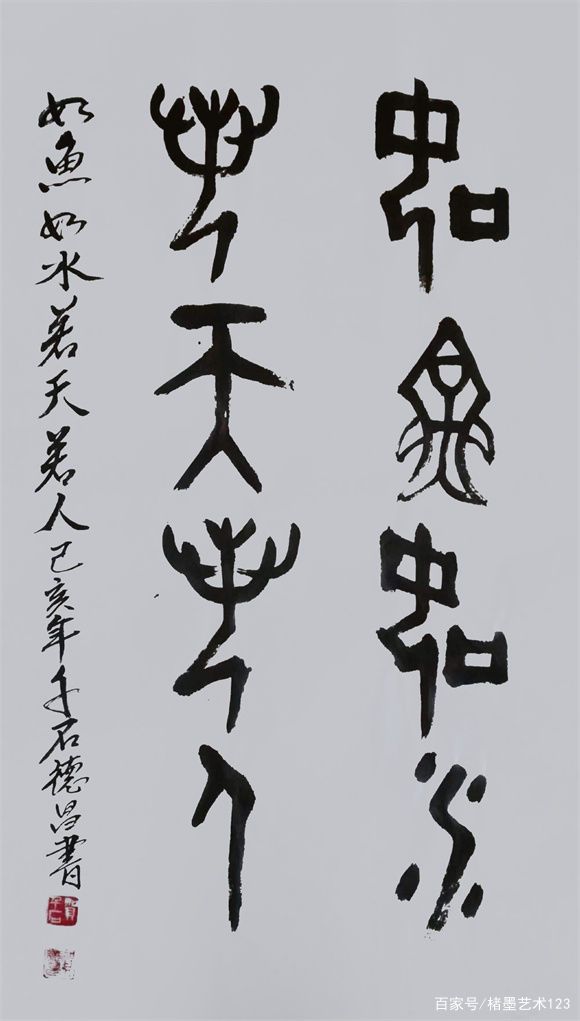 如魚如水
若天若人
如魚如水若天若人己亥年千石德昌書
百家号/楮墨艺术123